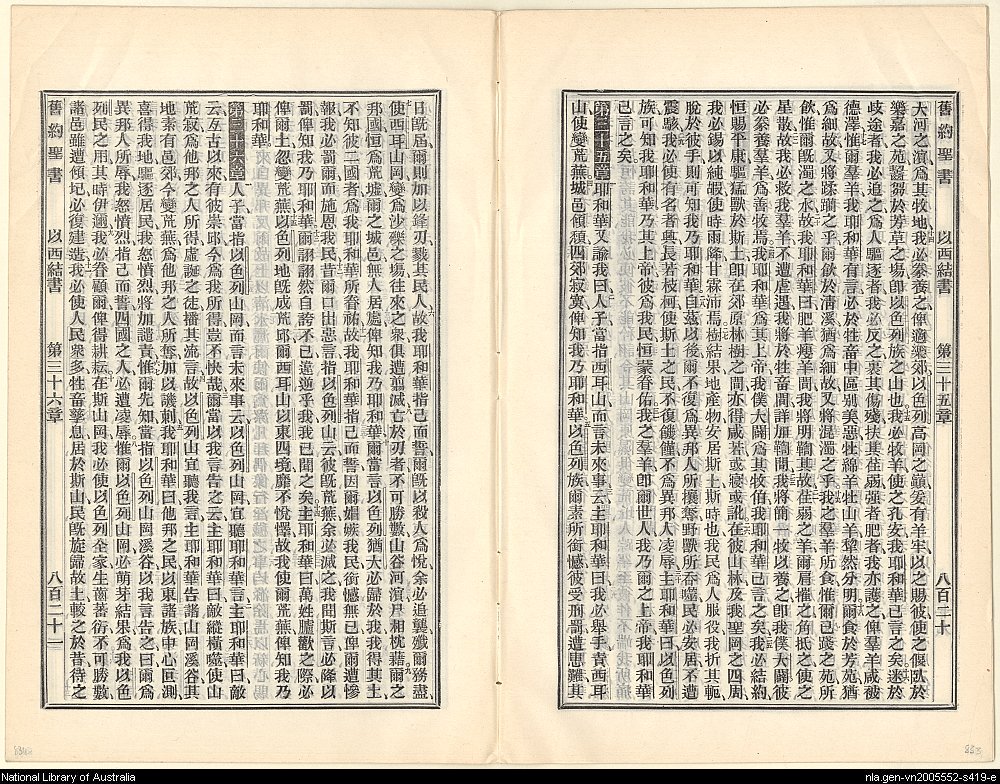 舊約聖書 以西結書 第三十五章 八百二十
大河之濱爲其牧地我必豢養之俾適樂郊以色列高岡之巔爰有羊牢以之賜彼使之偃臥於
樂嘉之苑齧芻於芳草之場卽以色列族之山也我必牧羊使之孔安我耶和華已言之矣迷於
歧途者我必追之爲人驅逐者我必反之裹其傷殘扶其荏弱强者肥者我亦護之俾羣羊咸被
德澤惟爾羣羊我耶和華有言必於牲畜中區别美惡牡綿羊牡山羊犂然分明爾食於芳苑猶
爲細故又將蹂躪之乎爾飲於淸溪猶爲細故又將混濁之乎我之羣羊所食惟爾已踐之苑所
飲惟爾旣濁之水故我耶和華曰肥羊瘦羊間我將明鞫其故荏弱之羊爾肩摧之角牴之使之
星散故我必救我羣羊不遭虐遇我將於牲畜間詳加鞫問我將簡一牧以養之卽我僕大闢彼
必豢養羣羊爲善牧焉我耶和華爲其上帝我僕大闢爲其牧伯我耶和華已言之矣我必結約
恒賜平康驅猛獸於斯土卽在郊原林樹之間亦得咸若或寢或訛在彼山林及我聖岡之四周
我必錫以純嘏使時雨降甘霖沛焉樹結果地產物安居斯土斯時也我民爲人服役我折其軛
脫於彼手則可知我乃耶和華自茲以後爾不復爲異邦人所攘奪野獸所吞噬民必安居不遭
震駭我必使有名者興長若枝柯使斯土之民不復饑饉不爲異邦人凌辱主耶和華曰以色列
族可知我耶和華乃其上帝彼爲我民恒蒙眷佑我之羣羊卽爾世人我乃爾之上帝我耶和華
已言之矣
第三十五章 耶和華又諭我曰人子當指西耳山而言未來事云主耶和華曰我必舉手責西耳
山使變荒蕪城邑傾頹四郊寂寞俾知我乃耶和華以色列族爾素所銜憾彼受刑罰遭患難其
舊約聖書 以西結書 第三十六章 八百二十一
日旣屆爾則加以鋒刃戮其民人故我耶和華指己而誓爾旣以殺人爲悅余必追襲殲爾務盡
使西耳山岡變爲沙礫之場往來之衆俱遭翦滅亡於刃者不可勝數山谷河濱尸相枕藉爾之
邦國恒爲荒墟爾之城邑無人居處俾知我乃耶和華爾嘗言以色列猶大必歸於我我得其土
不知彼二國者爲我耶和華所眷祐故我耶和華指己而誓因爾媢嫉我民銜憾無已俾爾遭慘
報我必罰爾而施恩我民昔爾口出惡言指以色列山云彼旣荒蕪余必滅之我聞斯言必降以
罰俾知我乃耶和華爾詡詡然自誇不已違逆乎我我已聞之矣主耶和華曰萬姓臚歡之際必
俾爾土忽變荒蕪以色列地旣成荒邱爾西耳山以東四境靡不悅懌故我使爾荒蕪俾知我乃
耶和華
第三十六章 人子當指以色列山岡而言未來事云以色列山岡宜聽耶和華言主耶和華曰敵
云亙古以來有彼崇邱今爲我所得豈不快哉爾當以我言告之云主耶和華曰敵縱橫噬使山
荒寂爲他邦之人所得虛誕之徒播其流言故以色列山宜聽我言主耶和華告諸山岡溪谷其
地素有邑郊今變荒蕪爲他邦之人所奪加以譏刺我耶和華曰他邦之民以東諸族中心叵測
喜得我地驅逐居民我怒憤烈將加譴責惟爾先知當指以色列山岡溪谷以我言告之曰爾爲
異邦人所辱我怒憤烈指己而誓四國之人必遭凌辱惟爾以色列山岡必萌芽結果爲我以色
列民之用其時伊邇我必眷顧爾俾得耕耘在斯山岡我必使以色列全家生齒蕃衍不可勝數
諸邑雖遭傾圮必復建造我必使人民衆多牲畜孳息居於斯山民旣旋歸故土較之於昔待之
National Library of Australia
nla.gen-vn2005552-s419-e